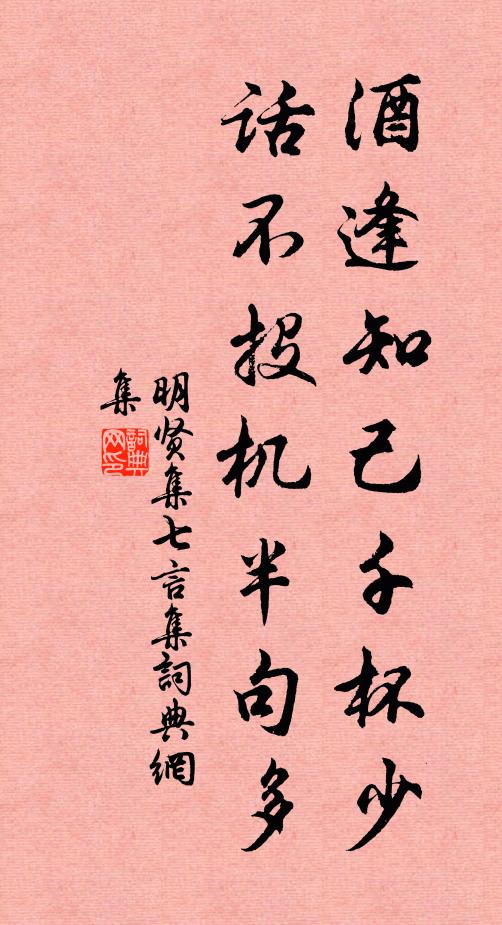 酒逢知己千杯少
话不投机半句多
明贤集七言集詞典網
集
詞典网印